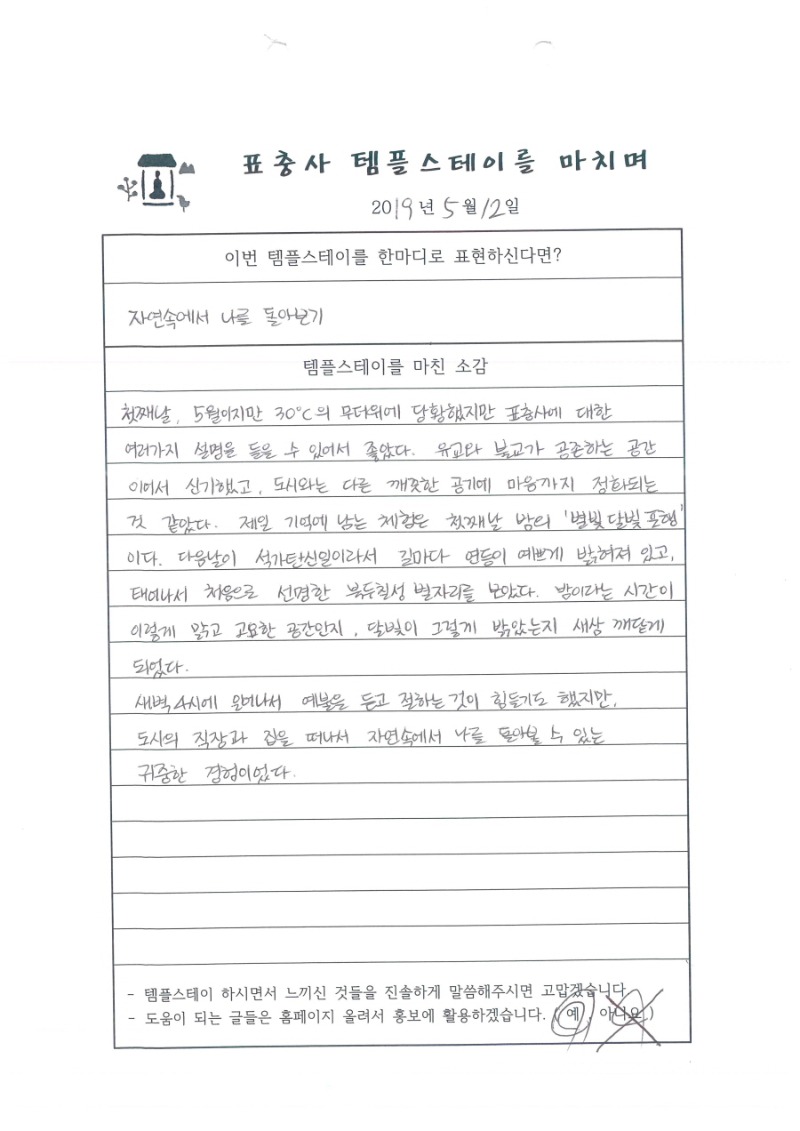 표충사 템플스테이를 마치며
2019년 5월 12일
이번 템플스테이를 한마디로 표현하신다면?
자연속에서 나를 돌아보기
템플스테이를 마친 소감
첫째날, 5월이지만 30℃의 무더위에 당황했지만 표충사에 대한
여러가지 설명을 들을 수 있어서 좋았다. 유교와 불교가 공존하는 공간
이어서 신기했고, 도시와는 다른 깨끗한 공기에 마음까지 정화되는
것 같았다. 제일 기억에 남는 체험은 첫째날 밤의 '별빛달빛포행'
이다. 다음날이 석가탄신일이라서 길마다 연등이 예쁘게 밝혀져 있고,
태어나서 처음으로 선명한 북두칠성 별자리를 보았다. 밤이라는 시간이
이렇게 맑고 고요한 공간인지, 달빛이 그렇게 밝았는지 새삼 깨닫게
되었다.
새벽 4시에 일어나서 예불을 듣고 절하는 것이 힘들기도 했지만,
도시의 직장과 집을 떠나서 자연속에서 나를 돌아볼 수 있는
귀중한 경험이었다.
- 템플스테이 하시면서 느끼신 것들을 진솔하게 말씀해주시면 고맙겠습니다
- 도움이 되는 글들은 홈페이지 올려서 홍보에 활용하겠습니다. (예, 아니오)